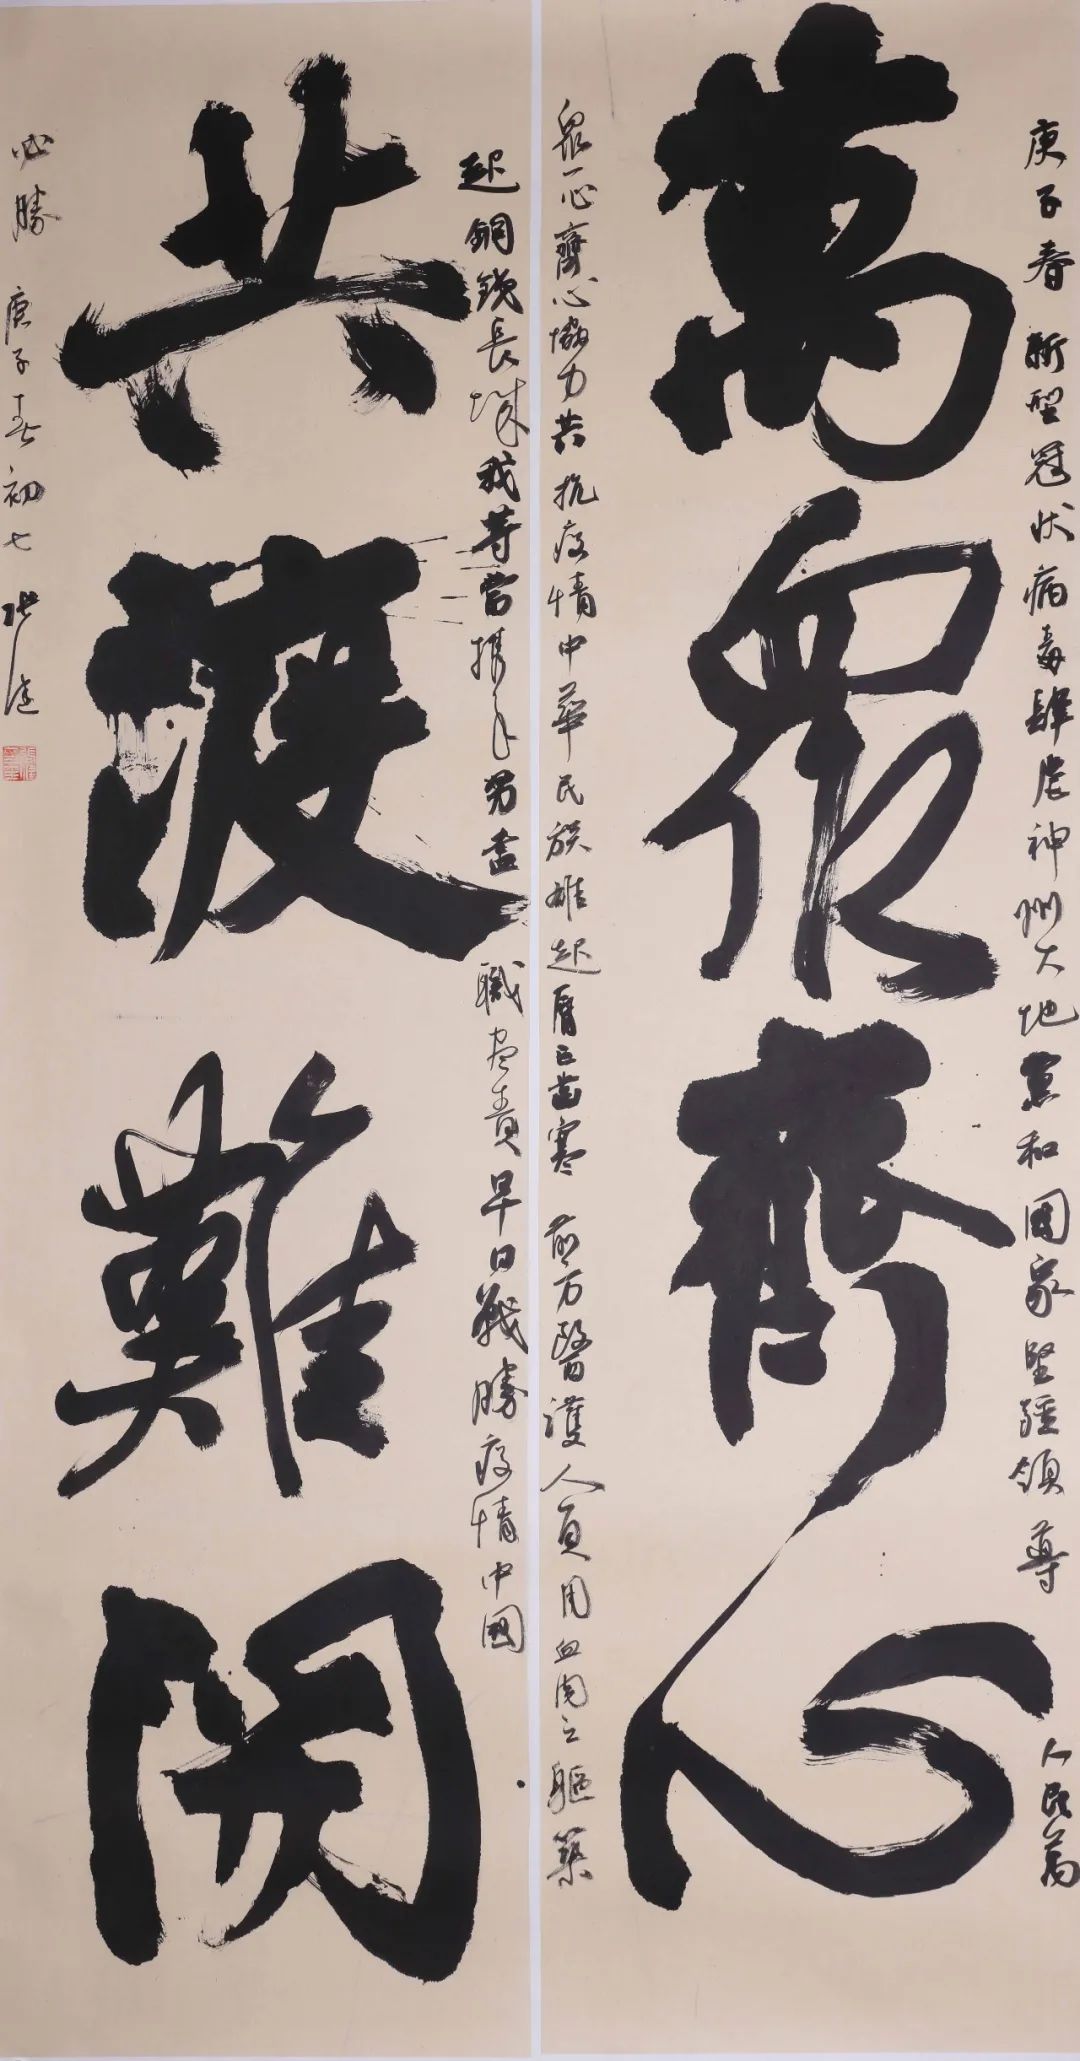 萬衆齊心
共渡難關
庚子春 新型冠狀病毒肆虐神州大地 黨和國家堅强領導 人民萬
衆一心齊心協力共抗疫情中華民族雄起唇亡齒寒 前方醫護人員用血肉之軀築
起銅鐵長城我等當携手努盡 職盡責早日戰勝疫情中國
必勝 庚子春初七